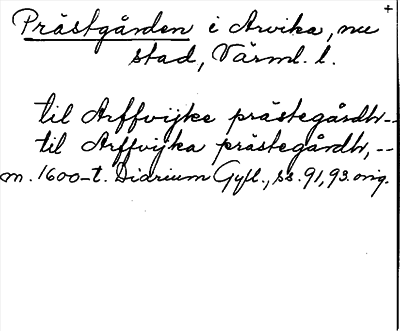 +
Prästgården i Arvika, nu
stad, Värml. l.
til Arffvijke prästegårdh--
til Arffvijka prästegårdh, --
m. 1600-t. Diarium Gyll., ss. 91, 93. orig.